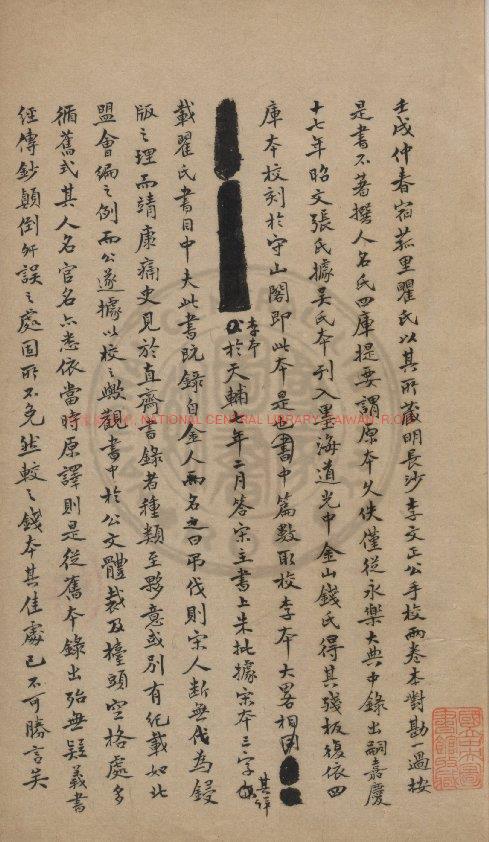 壬戌仲春宿菰里瞿氏以其所藏明長沙李文正公手校兩卷本對勘一過按
是書不著撰人名氏四庫提要謂原本久佚僅從永樂大典中錄出嗣嘉慶
十七年昭文張氏據吳氏本刊入墨海道光中金山錢氏得其殘板復依四
庫本校刻於守山閣即此本是也書中篇數取校李本大畧相同
李本於天輔七年二月答宋主書上朱批據宋本三字其詳
載瞿氏書目中夫此書既錄自金人而名之曰弔伐則宋人斷無代為鋟
版之理而靖康痛史見於直齋書錄者種類至夥意或別有紀載如北
盟會編之例而公遂據以校之歟觀書中於公文體裁及擡頭空格處多
循舊式其人名官名亦悉依當時原譯則是從舊本錄出殆無疑義書
經傳鈔顛倒舛誤之處固所不免然較之錢本其佳處已不可勝言矣
NATIONAL CENTRAL LIBRARY, TAIWAN, R.O.C